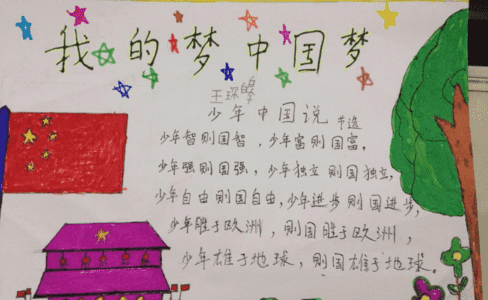 我的梦中国梦
王环皞
少年中国说 节选
少年智则国智，少年富则国富。
少年强则国强，少年独立则国独立，
少年自由则国自由，少年进步则国进步，
少年胜于欧洲，则国胜于欧洲，
少年雄于地球，则国雄于地球。